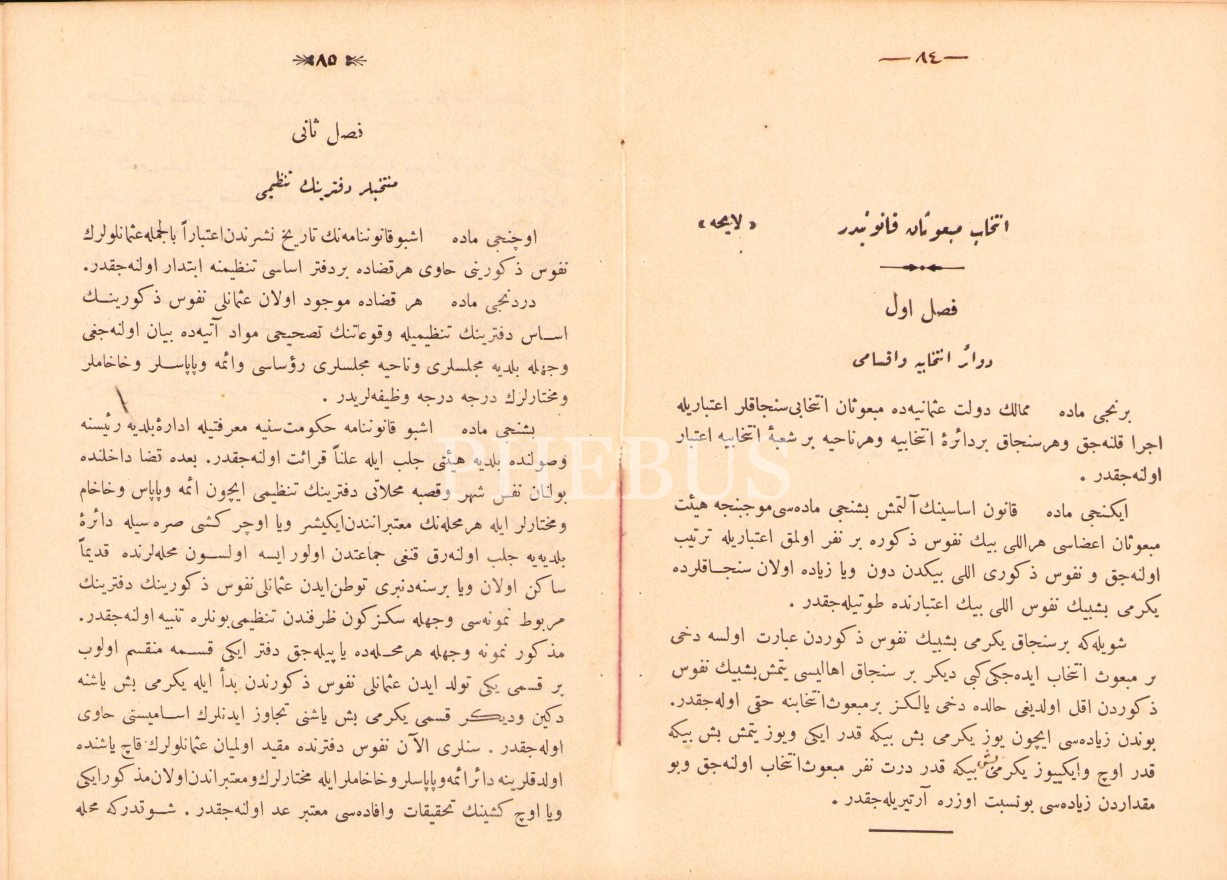 — ٨٤ —
انتخاب مبعوثان قانونیدر « لایحه »
فصل اول
دوائر انتخابیه واقسامی
برنجی ماده ممالك دولت عثمانیه‌ده مبعوثان انتخابی سنجاقلر اعتباریله
اجرا قلنه‌جق وهر سنجاق بر دائرهٔ انتخابیه وهر ناحیه بر شعبهٔ انتخابیه اعتبار
اولنه‌جقدر .
ایكنجی ماده قانون اساسینك آلتمش بشنجی ماده‌سی موجبنجه هیئت
مبعوثان اعضاسی هر اللی بیك نفوس ذكوره بر نفر اولمق اعتباریله ترتیب
اولنه‌جق و نفوس ذكوری اللی بیكدن دون ویا زیاده اولان سنجاقلرده
یكرمی بشبیك نفوس اللی بیك اعتبارنده طوتیله‌جقدر .
شویله‌كه بر سنجاق یكرمی بشبیك نفوس ذكوردن عبارت اولسه دخی
بر مبعوث انتخاب ایده‌جكی كبی دیكر بر سنجاق اهالیسی یتمش بشبیك نفوس
ذكوردن اقل اولدیغی حالده دخی یالكز بر مبعوث انتخابنه حقی اوله‌جقدر.
بوندن زیاده‌سی ایچون یوز یكرمی بش بیكه قدر ایكی ویوز یتمش بش بیكه
قدر اوچ وایكییوز یكرمی بش بیكه قدر درت نفر مبعوث انتخاب اولنه‌جق وبو
مقداردن زیاده‌سی بونسبت اوزره آرتیریله‌جقدر .
٨٥
فصل ثانی
منتخبلر دفترینك تنظیمی
اوچنجی ماده اشبو قانوننامه‌نك تاریخ نشرندن اعتباراً بالجمله عثمانلولرك
نفوس ذكورینی حاوی هر قضاده بر دفتر اساسی تنظیمنه ابتدار اولنه‌جقدر.
دردنجی ماده هر قضاده موجود اولان عثمانلی نفوس ذكورینك
اساس دفترینك تنظیمیله وقوعاتنك تصحیحی مواد آتیه‌ده بیان اولنه‌جغی
وجهله بلدیه مجلسلری وناحیه مجلسلری رؤساسی وائمه وپاپاسلر وخاخاملر
ومختارلرك درجه درجه وظیفه‌لریدر .
بشنجی ماده اشبو قانوننامه حكومت سنیه معرفتیله ادارهٔ بلدیه رئیسنه
وصولنده بلدیه هیئتی جلب ایله علناً قرائت اولنه‌جقدر. بعده قضا داخلنده
بولنان نفس شهر وقصبه محلاتی دفترینك تنظیمی ایچون ائمه وپاپاس وخاخام
ومختارلر ایله هر محله‌نك معتبرانندن ایكیشر ویا اوچر كشی صره‌سیله دائرهٔ
بلدیه‌یه جلب اولنه‌رق قنغی جماعتدن اولور ایسه اولسون محله‌لرنده قدیماً
ساكن اولان ویا بر سنه‌دنبری توطن ایدن عثمانلی نفوس ذكورینك دفترینك
مربوط نمونه‌سی وجهله سكز كون ظرفندن تنظیمی بونلره تنبیه اولنه‌جقدر.
مذكور نمونه وجهله هر محله‌ده یاپیله‌جق دفتر ایكی قسمه منقسم اولوب
بر قسمی یكی تولد ایدن عثمانلی نفوس ذكورندن بدأ ایله یكرمی بش یاشنه
دكین ودیكر قسمی یكرمی بش یاشنی تجاوز ایدنلرك اسامیسنی حاوی
اوله‌جقدر . سنلری الآن نفوس دفترنده مقید اولمیان عثمانلولرك قاچ یاشنده
اولدقلرینه دائر ائمه وپاپاسلر وخاخاملر ایله مختارلرك ومعتبراندن اولان مذكور ایكی
ویا اوچ كشینك تحقیقات وافاده‌سی معتبر عد اولنه‌جقدر . شوقدركه محله
PHEBUS